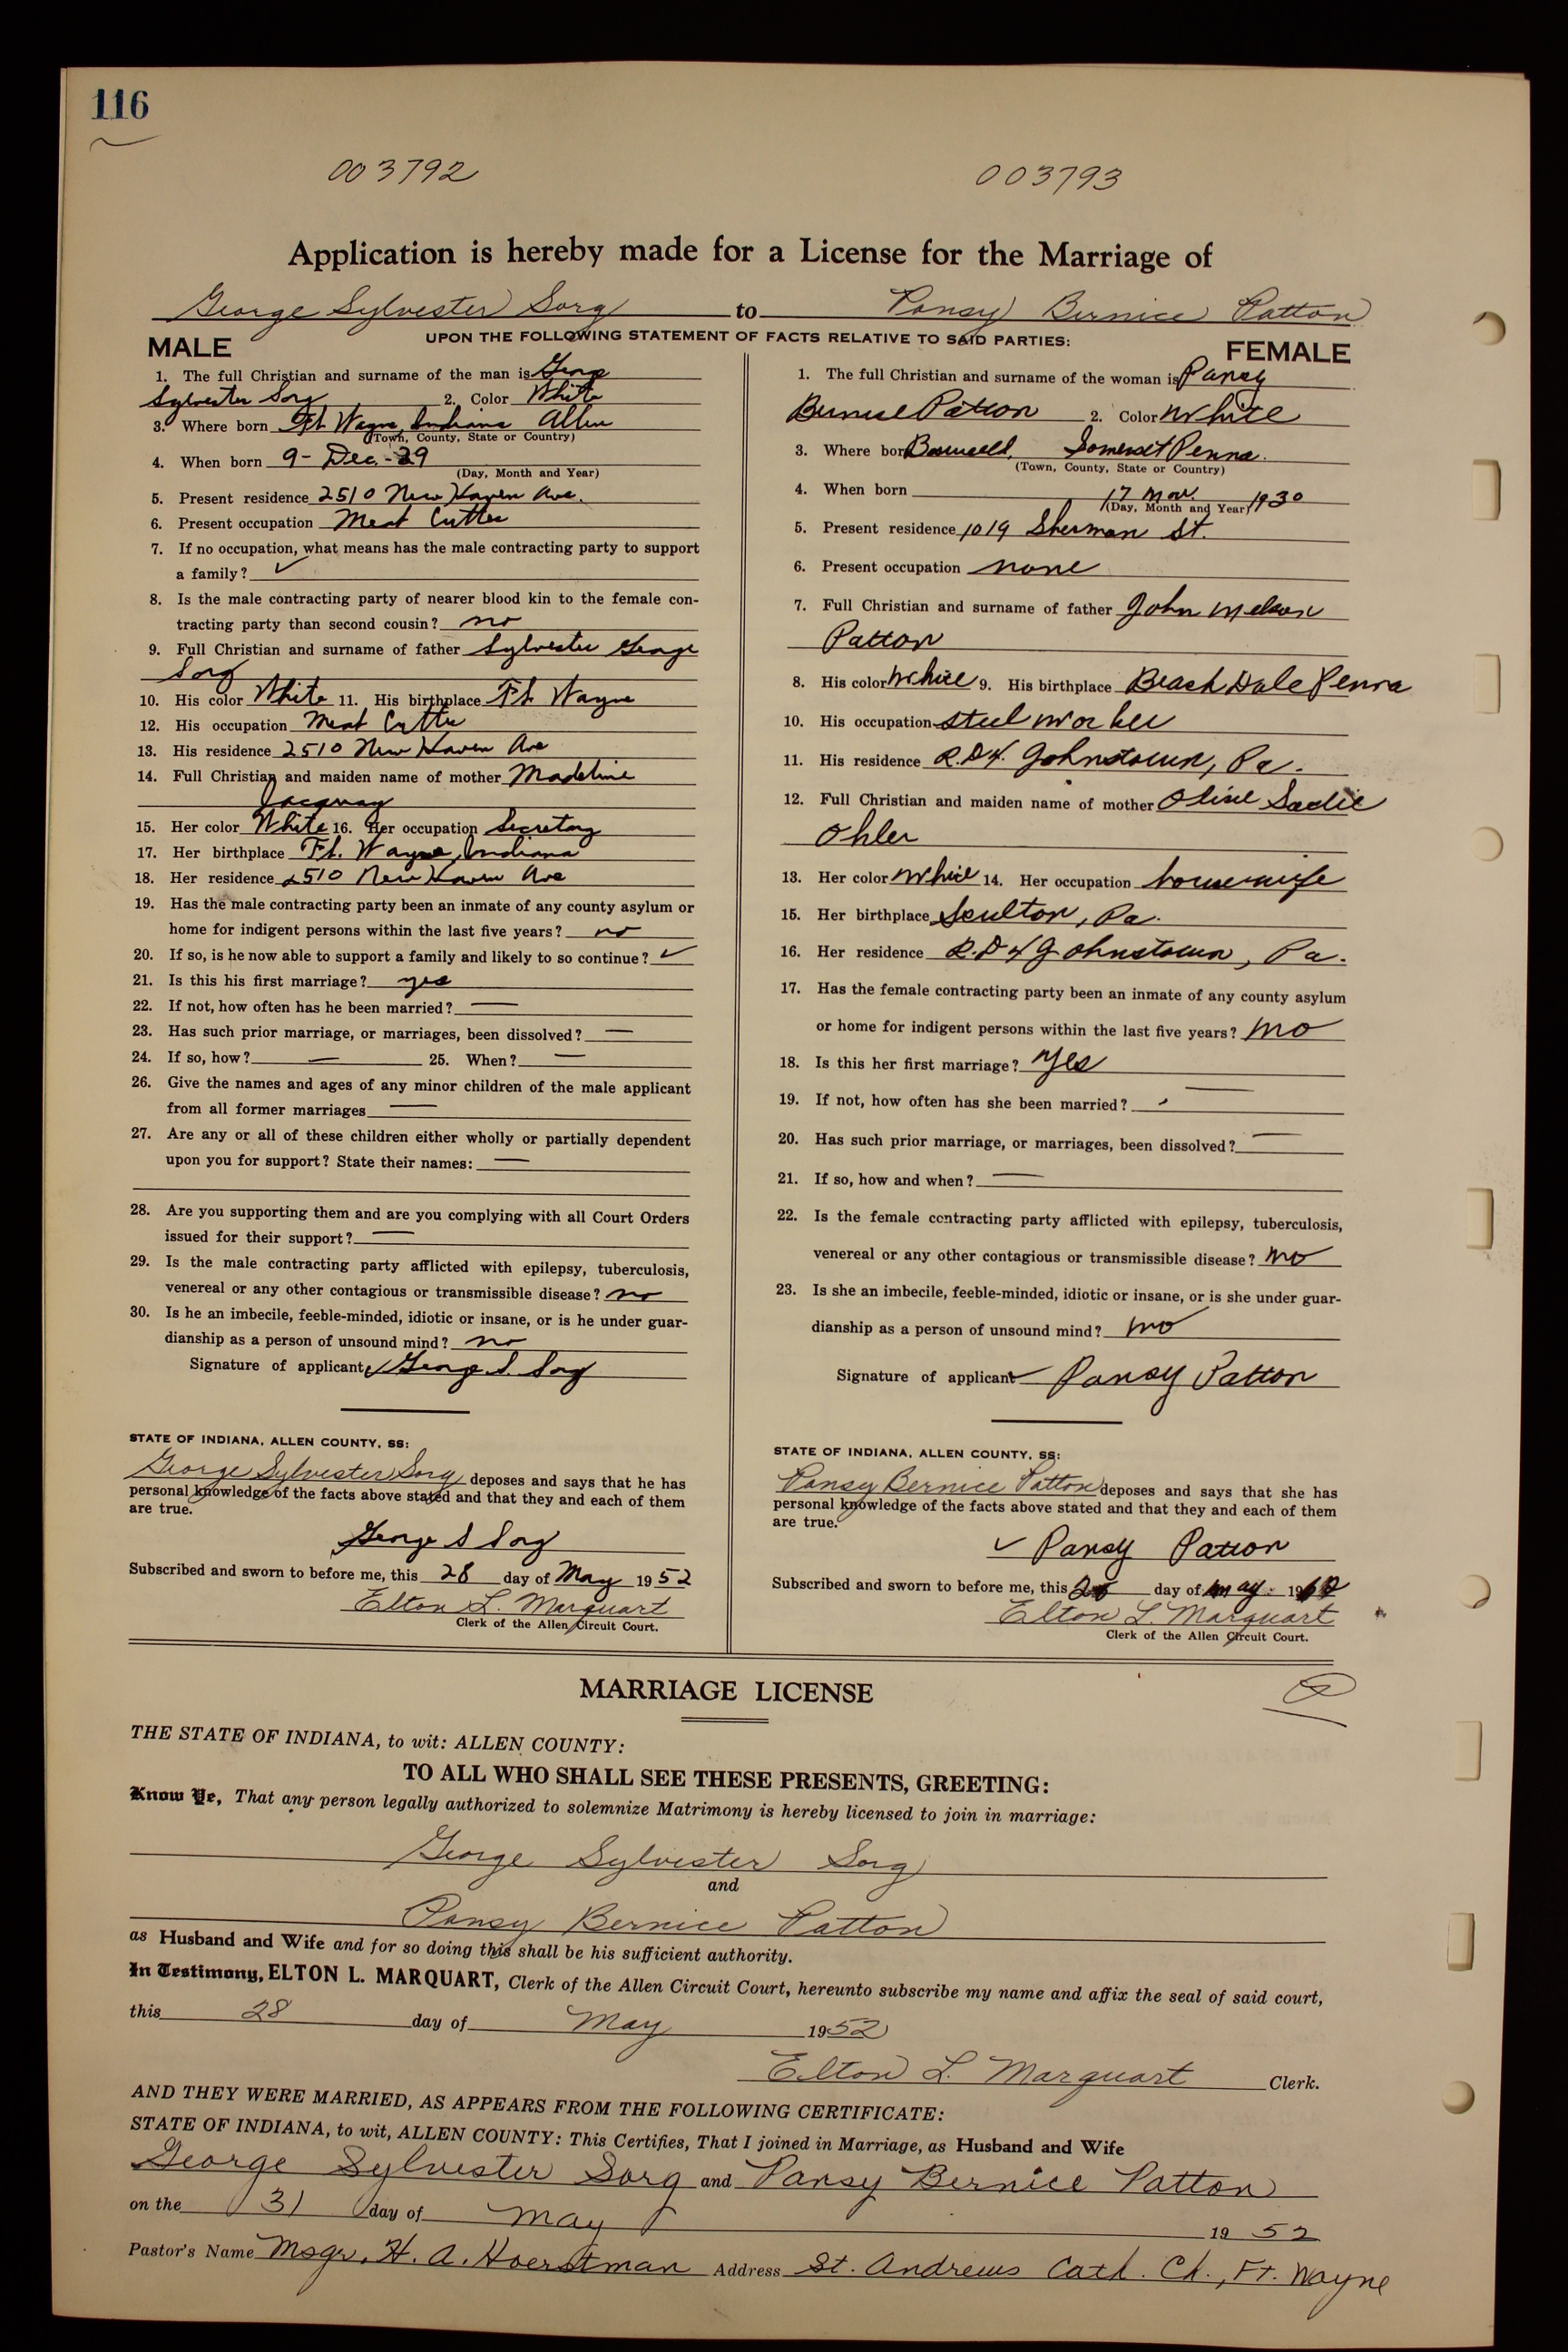 116
003792 003793
Application is hereby made for a License for the Marriage of
George Sylvester Sorg to Pansy Bernice Patton
UPON THE FOLLOWING STATEMENT OF FACTS RELATIVE TO SAID PARTIES:
MALE
1. The full Christian and surname of the man is George
Sylvester Sorg 2. Color White
3. Where born Ft Wayne, Indiana Allen
(Town, County, State or Country)
4. When born 9 - Dec. - 29
(Day, Month and Year)
5. Present residence 2510 New Haven Ave.
6. Present occupation Meat Cutter
7. If no occupation, what means has the male contracting party to support
a family? ✓
8. Is the male contracting party of nearer blood kin to the female con-
tracting party than second cousin? no
9. Full Christian and surname of father Sylvester George
Sorg
10. His color White 11. His birthplace Ft. Wayne
12. His occupation Meat Cutter
13. His residence 2510 New Haven Ave
14. Full Christian and maiden name of mother Madeline
Jacquay
15. Her color White 16. Her occupation Secretary
17. Her birthplace Ft. Wayne, Indiana
18. Her residence 2510 New Haven Ave
19. Has the male contracting party been an inmate of any county asylum or
home for indigent persons within the last five years? no
20. If so, is he now able to support a family and likely to so continue? ✓
21. Is this his first marriage? yes
22. If not, how often has he been married? —
23. Has such prior marriage, or marriages, been dissolved? —
24. If so, how? — 25. When? —
26. Give the names and ages of any minor children of the male applicant
from all former marriages —
27. Are any or all of these children either wholly or partially dependent
upon you for support? State their names: —
28. Are you supporting them and are you complying with all Court Orders
issued for their support? —
29. Is the male contracting party afflicted with epilepsy, tuberculosis,
venereal or any other contagious or transmissible disease? no
30. Is he an imbecile, feeble-minded, idiotic or insane, or is he under guar-
dianship as a person of unsound mind? no
Signature of applicant ✓ George S. Sorg
STATE OF INDIANA, ALLEN COUNTY, SS:
George Sylvester Sorg deposes and says that he has
personal knowledge of the facts above stated and that they and each of them
are true.
George S Sorg
Subscribed and sworn to before me, this 28 day of May 1952
Elton L. Marquart
Clerk of the Allen Circuit Court.
FEMALE
1. The full Christian and surname of the woman is Pansy
Bernice Patton 2. Color White
3. Where born Boswell, Somerset Penna.
(Town, County, State or Country)
4. When born 17 Mar. 1930
(Day, Month and Year)
5. Present residence 1019 Sherman St.
6. Present occupation none
7. Full Christian and surname of father John
Patton
8. His color White 9. His birthplace Beach Dale Penna
10. His occupation steel worker
11. His residence R.D4. Johnstown, Pa.
12. Full Christian and maiden name of mother Olive Sadie
Ohler
13. Her color White 14. Her occupation housewife
15. Her birthplace Scullton, Pa.
16. Her residence R.D4 Johnstown, Pa.
17. Has the female contracting party been an inmate of any county asylum
or home for indigent persons within the last five years? no
18. Is this her first marriage? Yes
19. If not, how often has she been married? —
20. Has such prior marriage, or marriages, been dissolved? —
21. If so, how and when? —
22. Is the female contracting party afflicted with epilepsy, tuberculosis,
venereal or any other contagious or transmissible disease? no
23. Is she an imbecile, feeble-minded, idiotic or insane, or is she under guar-
dianship as a person of unsound mind? no
Signature of applicant ✓ Pansy Patton
STATE OF INDIANA, ALLEN COUNTY, SS:
Pansy Bernice Patton deposes and says that she has
personal knowledge of the facts above stated and that they and each of them
are true.
✓ Pansy Patton
Subscribed and sworn to before me, this day of May 19
Elton L. Marquart
Clerk of the Allen Circuit Court.
MARRIAGE LICENSE
THE STATE OF INDIANA, to wit: ALLEN COUNTY:
TO ALL WHO SHALL SEE THESE PRESENTS, GREETING:
Know Ye, That any person legally authorized to solemnize Matrimony is hereby licensed to join in marriage:
George Sylvester Sorg
and
Pansy Bernice Patton
as Husband and Wife and for so doing this shall be his sufficient authority.
In Testimony, ELTON L. MARQUART, Clerk of the Allen Circuit Court, hereunto subscribe my name and affix the seal of said court,
this 28 day of May 1952
Elton L. Marquart Clerk.
AND THEY WERE MARRIED, AS APPEARS FROM THE FOLLOWING CERTIFICATE:
STATE OF INDIANA, to wit, ALLEN COUNTY: This Certifies, That I joined in Marriage, as Husband and Wife
George Sylvester Sorg and Pansy Bernice Patton
on the 31 day of May 1952
Pastor's Name Msgr. H. A. Hoerstman Address St. Andrews Cath. Ch., Ft. Wayne